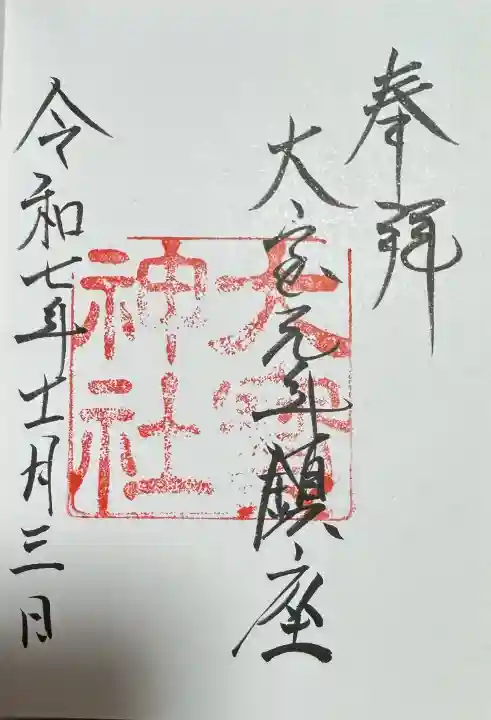 奉拝
大宝元年鎮座
大寶
神社
令和七年十一月三日